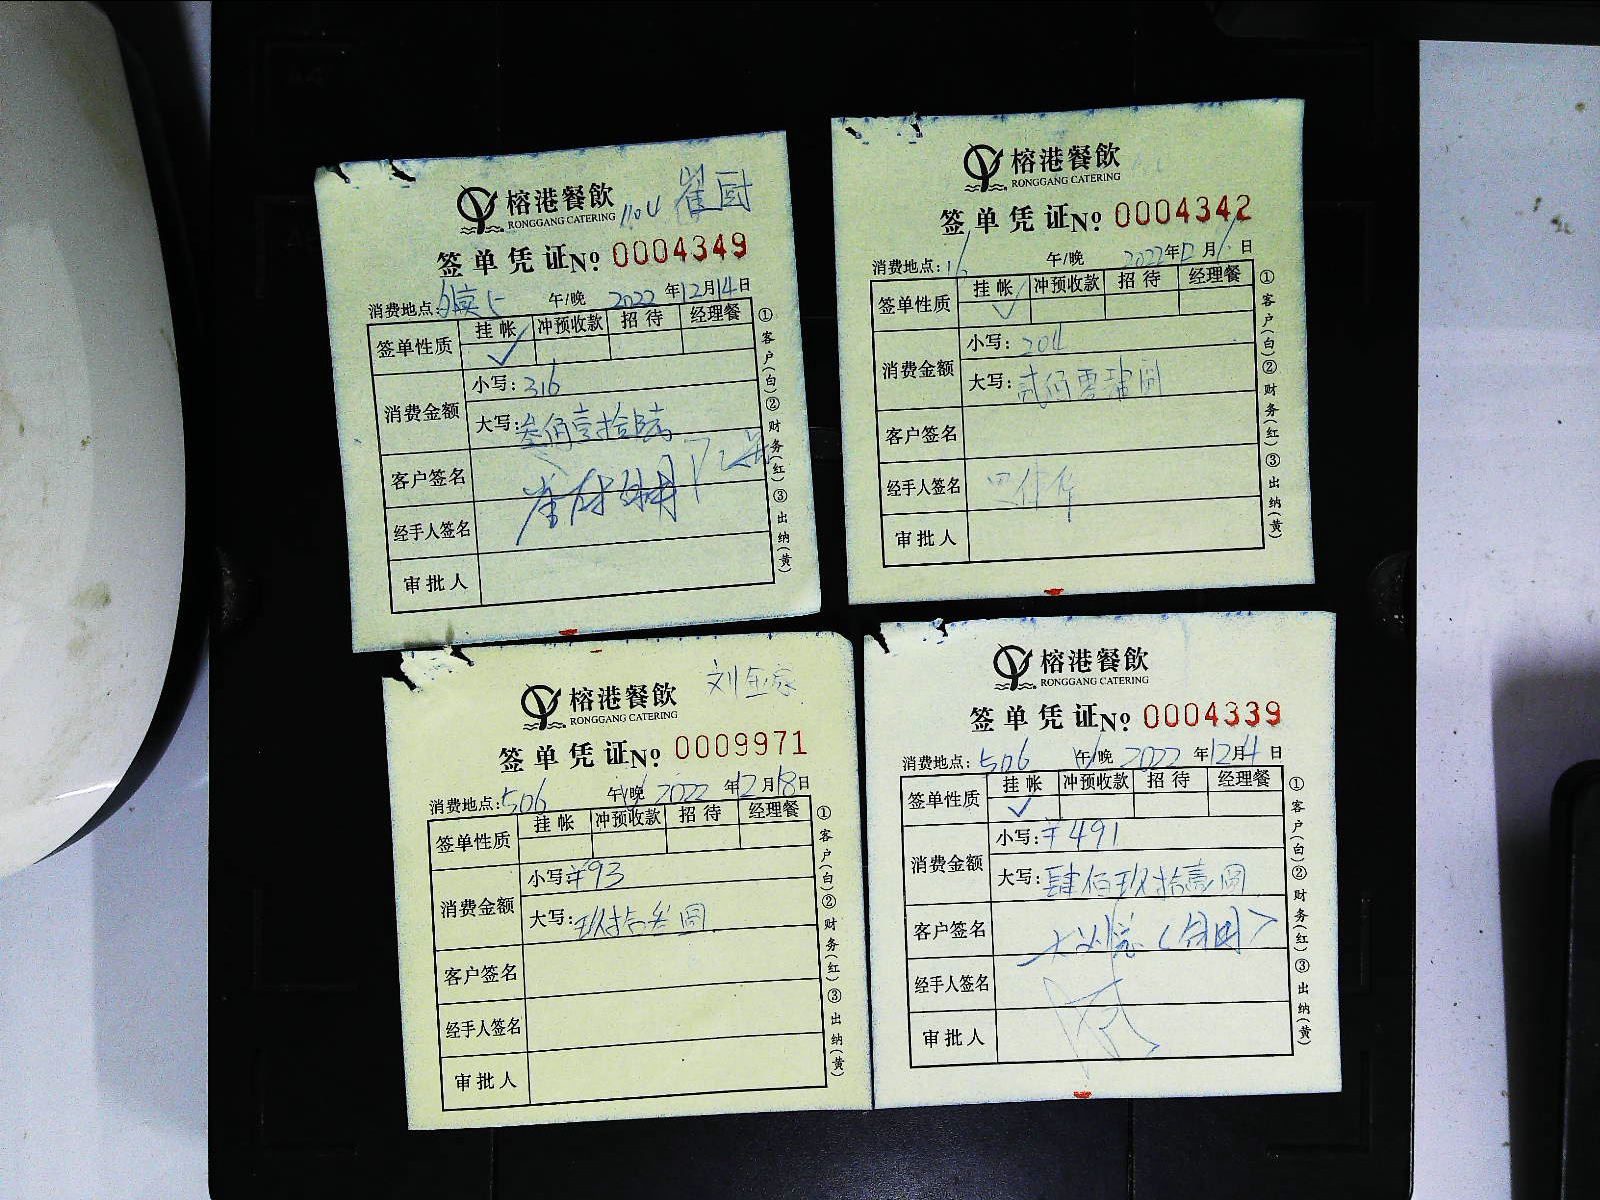 榕港餐飲
RONGGANG CATERING
签单凭证No 0004349
消费地点: 午/晚 2022年12月14日
签单性质 挂帐 冲预收款 招待 经理餐
✓
消费金额 小写:316
大写:叁佰壹拾陆
客户签名
经手人签名
审批人
①客户(白)②财务(红)③出纳(黄)
榕港餐飲
RONGGANG CATERING
签单凭证No 0004342
消费地点: 午/晚 2022年12月 日
签单性质 挂帐 冲预收款 招待 经理餐
✓
消费金额 小写:204
大写:贰佰零肆圆
客户签名
经手人签名
审批人
①客户(白)②财务(红)③出纳(黄)
榕港餐飲
RONGGANG CATERING
签单凭证No 0009971
消费地点:506 午/晚 2022年12月18日
签单性质 挂帐 冲预收款 招待 经理餐
消费金额 小写:¥93
大写:玖拾叁圆
客户签名
经手人签名
审批人
①客户(白)②财务(红)③出纳(黄)
榕港餐飲
RONGGANG CATERING
签单凭证No 0004339
消费地点:506 午/晚 2022年12月4日
签单性质 挂帐 冲预收款 招待 经理餐
✓
消费金额 小写:¥491
大写:肆佰玖拾壹圆
客户签名
经手人签名
审批人
①客户(白)②财务(红)③出纳(黄)